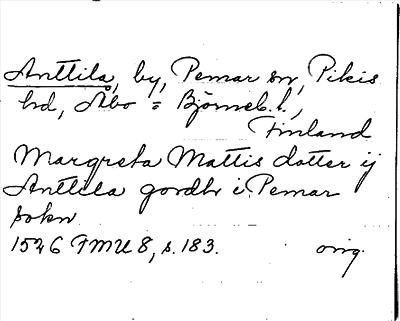 Anttila, by, Pemar sn, Pikis
hd, Åbo = Björneb. l.,
Finland
Margreta Mattis dotter ij
Anttila gordh i Pemar
sokn
1526 FMU 8, s. 183. orig.